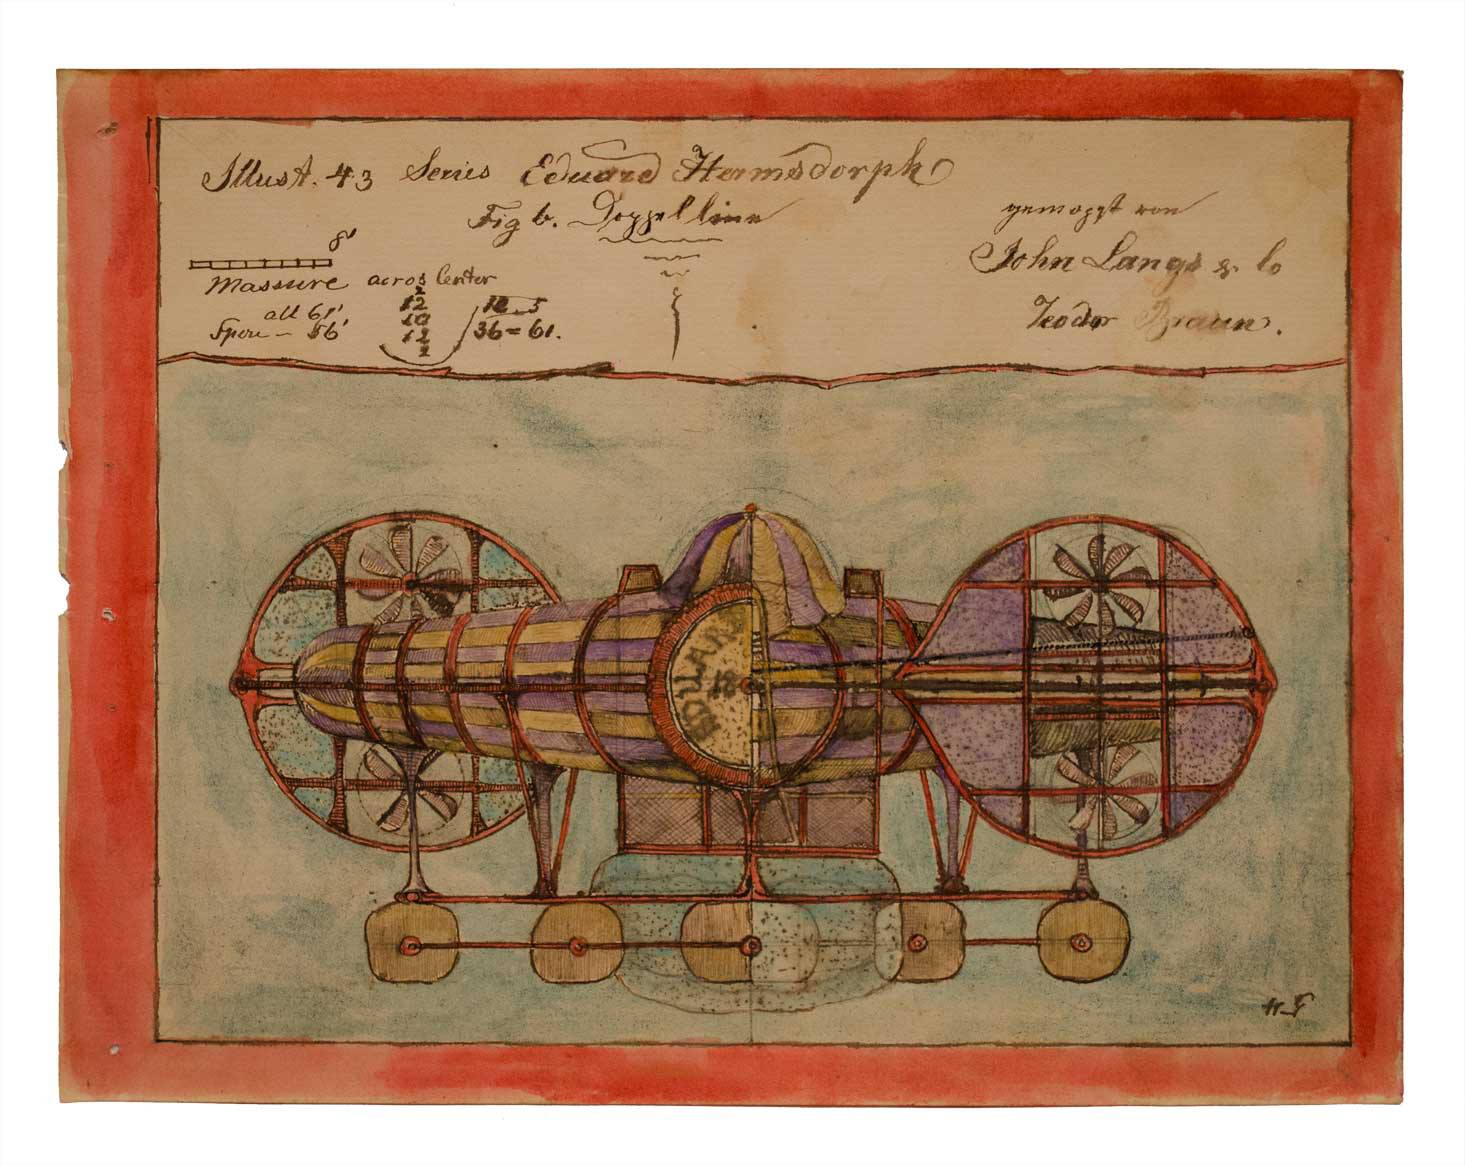 Illust. 43 Series Eduard Hermsdorph
Fig 6. Doppelline
gemopft von
John Langs & Co
Teodor Braun.
8'
Massure acros Center
all 61'
Spore - 56'
2
12
10
12
2
12 5
36 = 61.
EDUARD
H_F